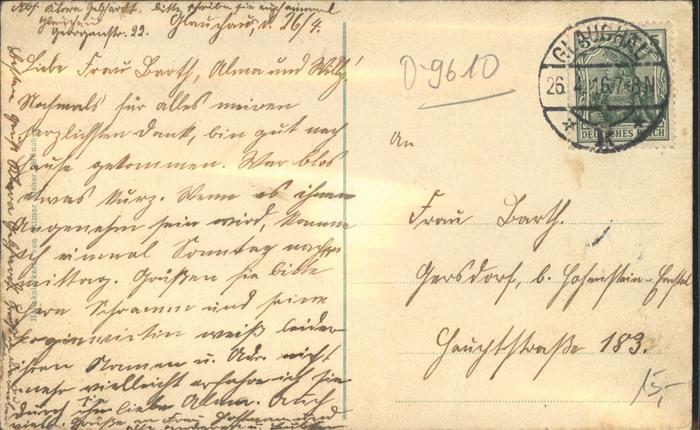 Abs. Klara Gebhardt. Bitte schreiben sie auch einmal
Glauchau
Georgenstr. 22.
Glauchau, d. 26/4.
Liebe Frau Barth, Alma und Willy!
Nochmals für alles meinen
herzlichsten Dank, bin gut nach
Hause gekommen. War blos
etwas kurz. Wenn es ihnen
Angenehm sein wird, komme
ich einmal Sonntag nachm
mittag. Grüßen sie bitte
Herrn Schramm und seine
weiß leider
ihren Namen u. Adr. nicht
mehr vielleicht erfahre ich sie
durch sie liebe Alma. Auch
viele Grüße an Frau Hofmann und
0-9610
GLAUCHAU
26.4.16.7-8N
DEUTSCHES REICH
An
Frau Barth.
Gersdorf, b. Hohenstein-Ernstal
Hauptstraße 183.
15,-